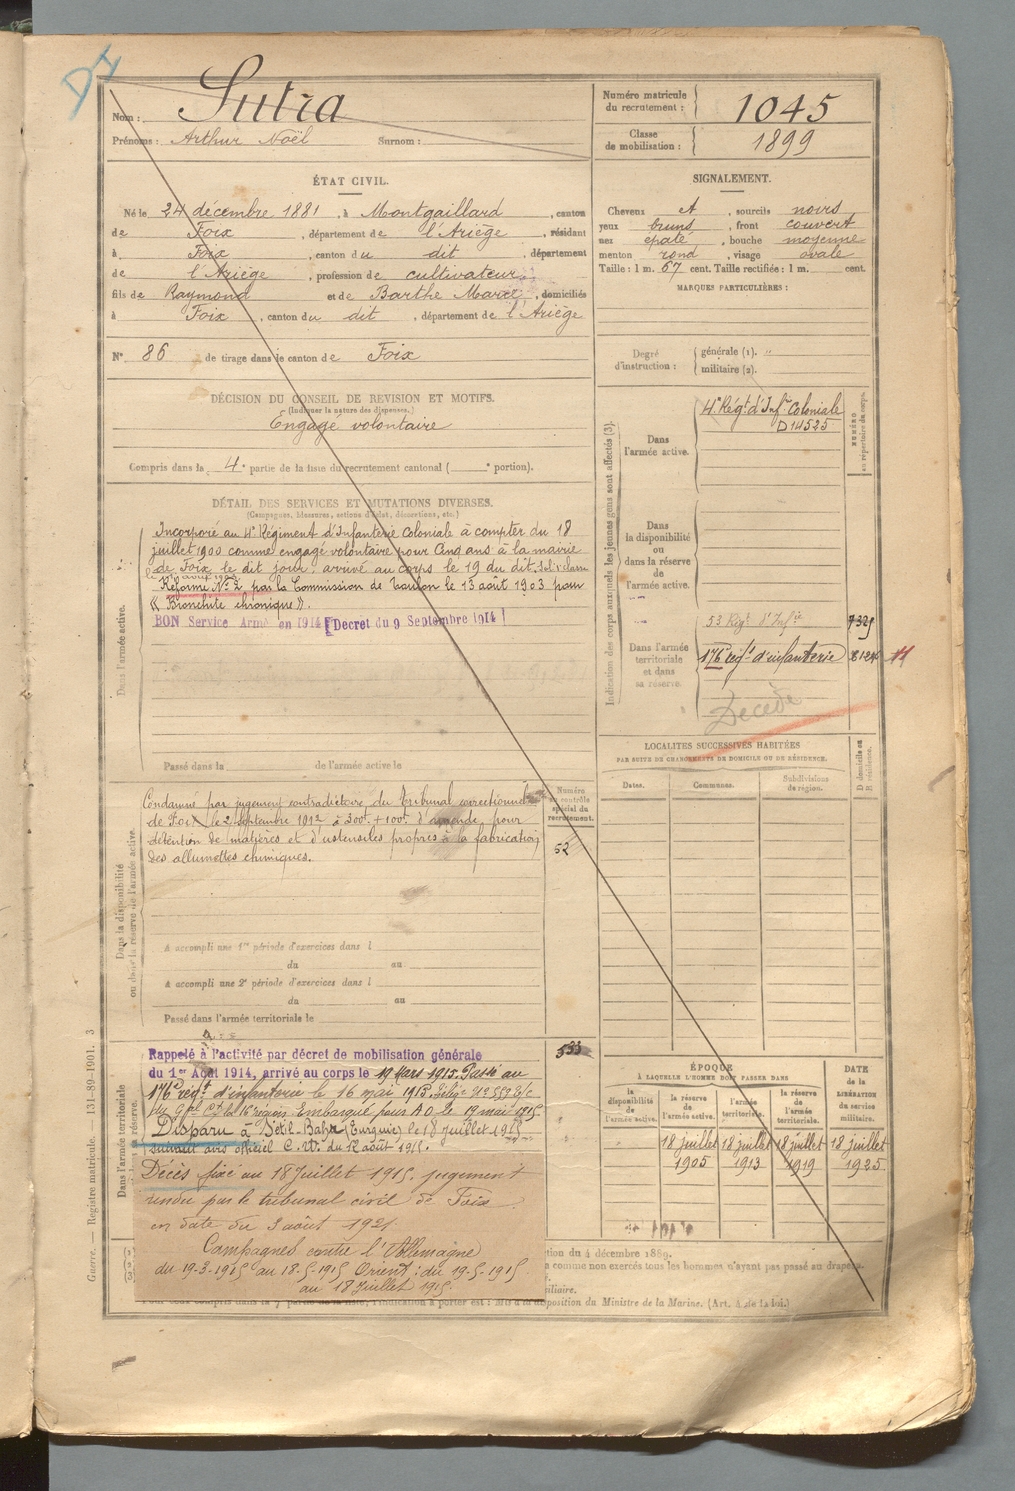 Nom : Sutra
Prénoms : Arthur Noël Surnom :
Numéro matricule du recrutement : 1045
Classe de mobilisation : 1899
ÉTAT CIVIL.
Né le 24 décembre 1881, à Montgaillard, canton
de Foix, département de l'Ariège, résidant
à Foix, canton du dit, département
de l'Ariège, profession de cultivateur
fils de Raymond et de Barthe Marie, domiciliés
à Foix, canton du dit, département de l'Ariège
N° 86 de tirage dans le canton de Foix
SIGNALEMENT.
Cheveux et, sourcils noirs
yeux bruns, front couvert
nez épaté, bouche moyenne
menton rond, visage ovale
Taille : 1 m. 67 cent. Taille rectifiée : 1 m. cent.
MARQUES PARTICULIÈRES :
Degré d'instruction : générale (1). "
militaire (2).
DÉCISION DU CONSEIL DE REVISION ET MOTIFS.
(Indiquer la nature des dispenses.)
Engagé volontaire
Compris dans la 4e partie de la liste du recrutement cantonal ( e portion).
DÉTAIL DES SERVICES ET MUTATIONS DIVERSES.
(Campagnes, blessures, actions d'éclat, décorations, etc.)
Dans l'armée active.
Incorporé au 4e Régiment d'Infanterie Coloniale à compter du 18
juillet 1900 comme engagé volontaire pour cinq ans à la mairie
de Foix le dit jour. arrivé au corps le 19 du dit. Sol. 2e classe
Réformé N° 2 par la Commission de Toulon le 13 août 1903 pour
« Bronchite chronique ».
BON Service Armé en 1914 [Decret du 9 Septembre 1914]
Passé dans la de l'armée active le
Indication des corps auxquels les jeunes gens sont affectés (3).
Dans l'armée active.
4e Régt d'Infrie Coloniale
D 14525
NUMÉRO au répertoire du corps.
Dans la disponibilité ou dans la réserve de l'armée active.
Dans l'armée territoriale et dans sa réserve.
53 Régt d'Infie
176e régt d'infanterie
11
Décédé
LOCALITES SUCCESSIVES HABITÉES
PAR SUITE DE CHANGEMENTS DE DOMICILE OU DE RÉSIDENCE.
Dates. Communes. Subdivisions de région. D domicile ou R résidence.
Dans la disponibilité ou dans la réserve de l'armée active.
Condamné par jugement contradictoire du Tribunal correctionnel
de Foix le 2 septembre 1912 à 300f. + 100f. d'amende pour
détention de matières et d'ustensiles propres à la fabrication
des allumettes chimiques.
Numéro au contrôle spécial du recrutement.
52
A accompli une 1re période d'exercices dans l
du au
A accompli une 2e période d'exercices dans l
du au
Passé dans l'armée territoriale le
Dans l'armée territoriale
Rappelé à l'activité par décret de mobilisation générale
du 1er Août 1914, arrivé au corps le 19 Mars 1915. Passé au
176e régt d'infanterie le 16 mai 1915.
Embarqué pour A.O. le 19 mai 1915
Disparu à Sétil-Bahr (Turquie) le 18 Juillet 1915
suivant avis officiel C.W. du 12 août 1915.
Décès fixé au 18 Juillet 1915. jugement
rendu par le tribunal civil de Foix
en date du 3 août 1921.
Campagnes contre l'Allemagne
du 19-3-1915 au 18-5-1915 Orient : du 19-5-1915
au 18 Juillet 1915.
ÉPOQUE
À LAQUELLE L'HOMME DOIT PASSER DANS
la disponibilité de l'armée active. la réserve de l'armée active. l'armée territoriale. la réserve de l'armée territoriale.
DATE de la LIBÉRATION du service militaire.
18 juillet 1905 18 juillet 1913 18 juillet 1919 18 juillet 1925
tion du 4 décembre 1889.
comme non exercés tous les hommes n'ayant pas passé au drapeau
iliaire.
l'indication à porter est : Mis à la disposition du Ministre de la Marine. (Art. 4 de la loi.)
Guerre. — Registre matricule. 131-89-1901. 3